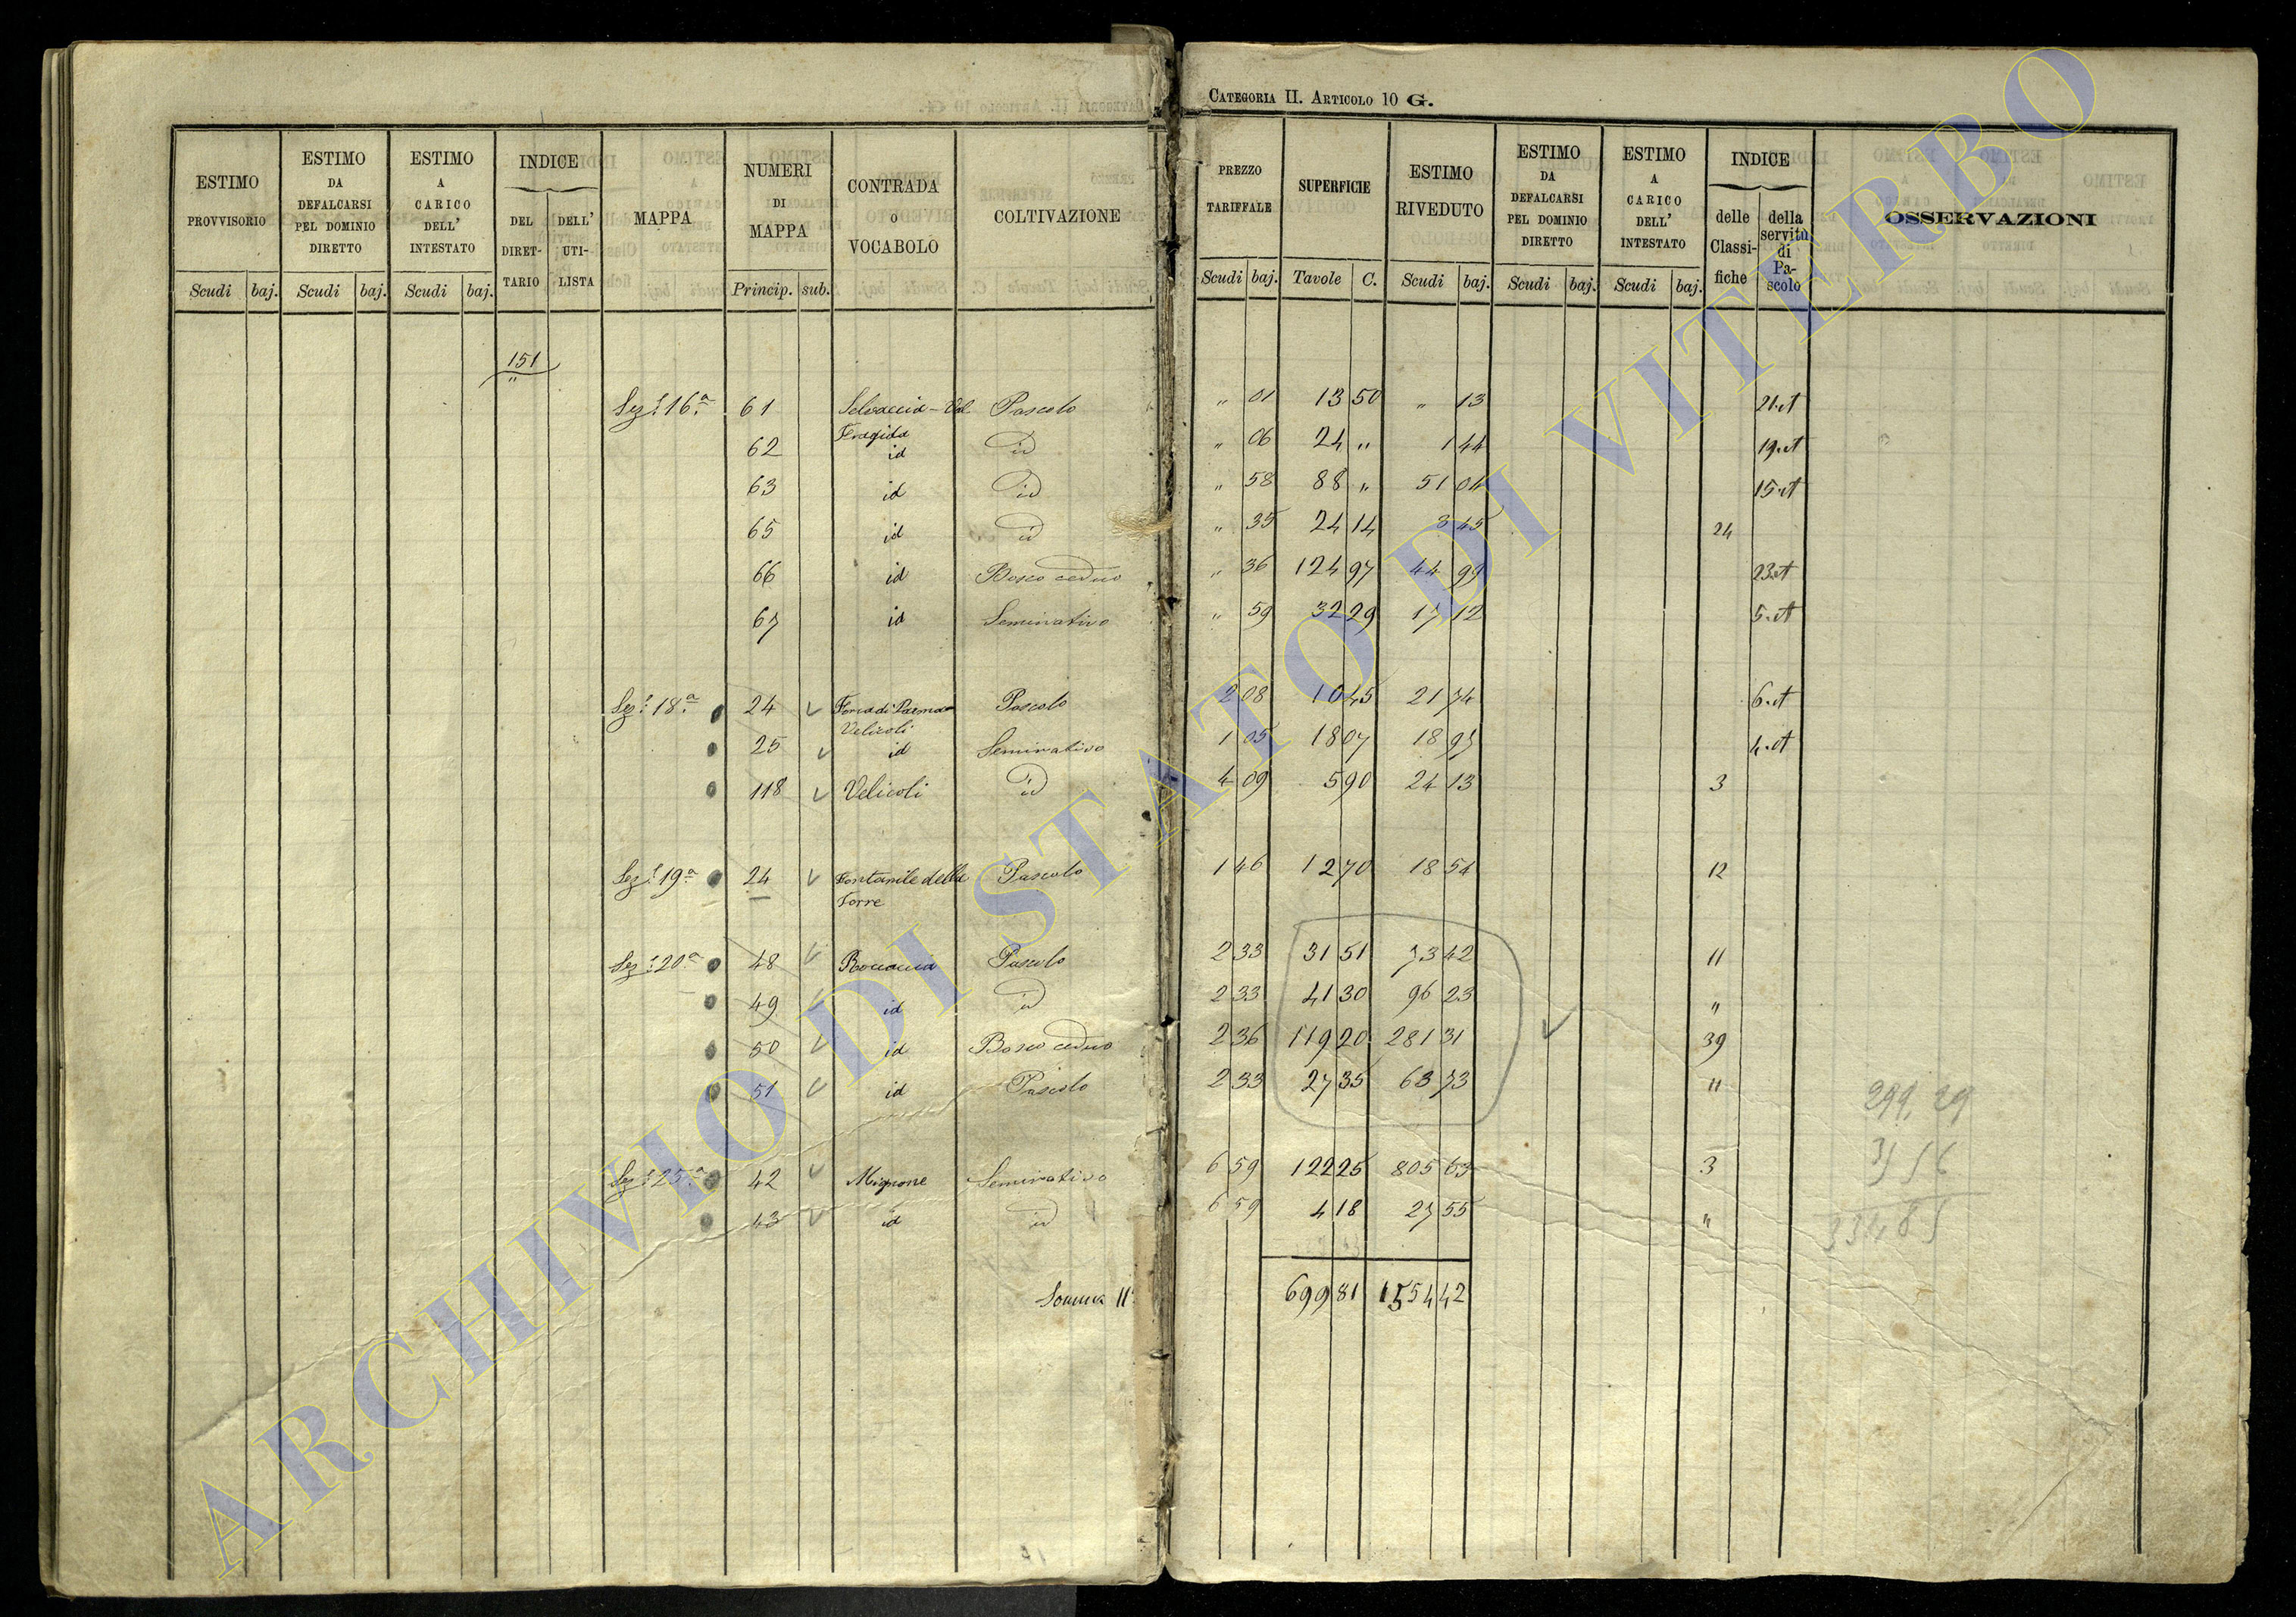 CATEGORIA II. ARTICOLO 10 G.
ESTIMO PROVVISORIO Scudi baj. ESTIMO DA DEFALCARSI PEL DOMINIO DIRETTO Scudi baj. ESTIMO A CARICO DELL' INTESTATO Scudi baj. INDICE DEL DIRETTARIO DELL' UTILISTA MAPPA NUMERI DI MAPPA Princip. sub. CONTRADA O VOCABOLO COLTIVAZIONE
PREZZO TARIFFALE Scudi baj. SUPERFICIE Tavole C. ESTIMO RIVEDUTO Scudi baj. ESTIMO DA DEFALCARSI PEL DOMINIO DIRETTO Scudi baj. ESTIMO A CARICO DELL' INTESTATO Scudi baj. INDICE delle Classifiche della servitù di Pascolo OSSERVAZIONI
151
"
Sez. 16a 61 Selvaccia - Val Pascolo " 01 13 50 " 13 21.A
Fragida
62 id id " 06 24 " 1 44 19.A
63 id id " 58 88 " 51 04 15.A
65 id id " 35 24 14 8 45 24
66 id Bosco ceduo " 36 124 97 44 99 23.A
67 id Seminativo " 59 32 29 17 12 5.A
Sez. 18a 24 Pascolo 2 08 10 45 21 74 6.A
Velicoli
25 id Seminativo 1 05 18 07 18 97 4.A
118 Velicoli id 4 09 5 90 24 13 3
Sez. 19a 24 Fontanile della Pascolo 1 46 12 70 18 54 12
Torre
Sez. 20a 48 Roccaccia Pascolo 2 33 31 51 73 42 11
49 id id 2 33 41 30 96 23 "
50 id Bosco ceduo 2 36 119 20 281 31 39
51 id Pascolo 2 33 27 35 63 73 11
Sez. 25a 42 Mignone Seminativo 6 59 122 25 805 63 3
43 id id 6 59 4 18 27 55 "
Somma 699 81 1554 42
299,29
334 85
ARCHIVIO DI STATO DI VITERBO